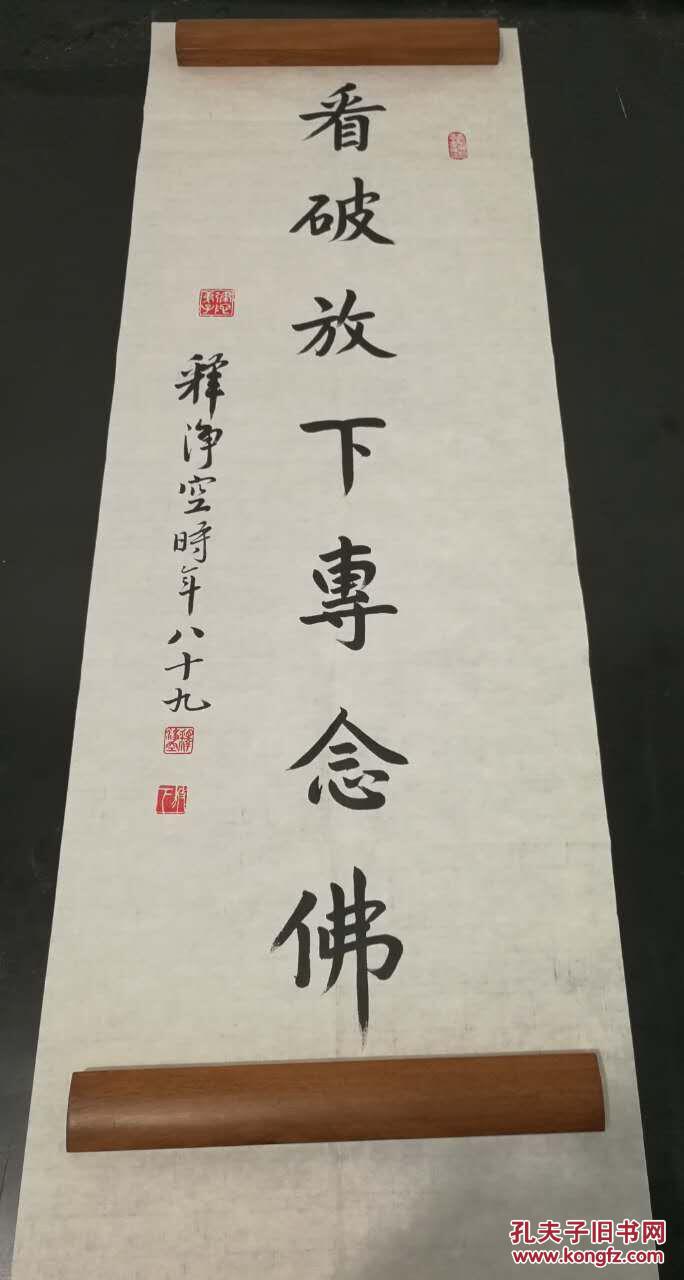 看破放下專念佛
釋淨空時年八十九
孔夫子旧书网
www.kongfz.com